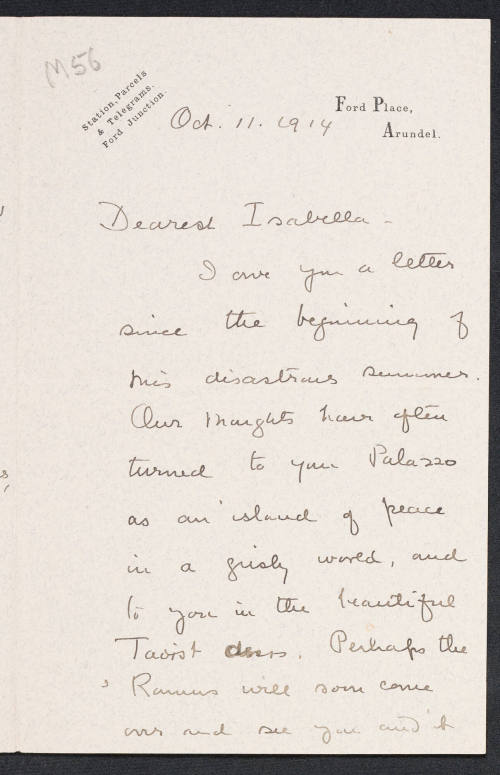 M56
Station, Parcels
& Telegrams.
Ford Junction.
Ford Place,
Arundel.
Oct. 11. 1914
Dearest Isabella -
I owe you a letter
since the beginning of
this disastrous summer.
Our thoughts have often
turned to your Palazzo
as an island of peace
in a grisly world, and
to you in the beautiful
Taoist Perhaps the
will soon come
over and see you and it